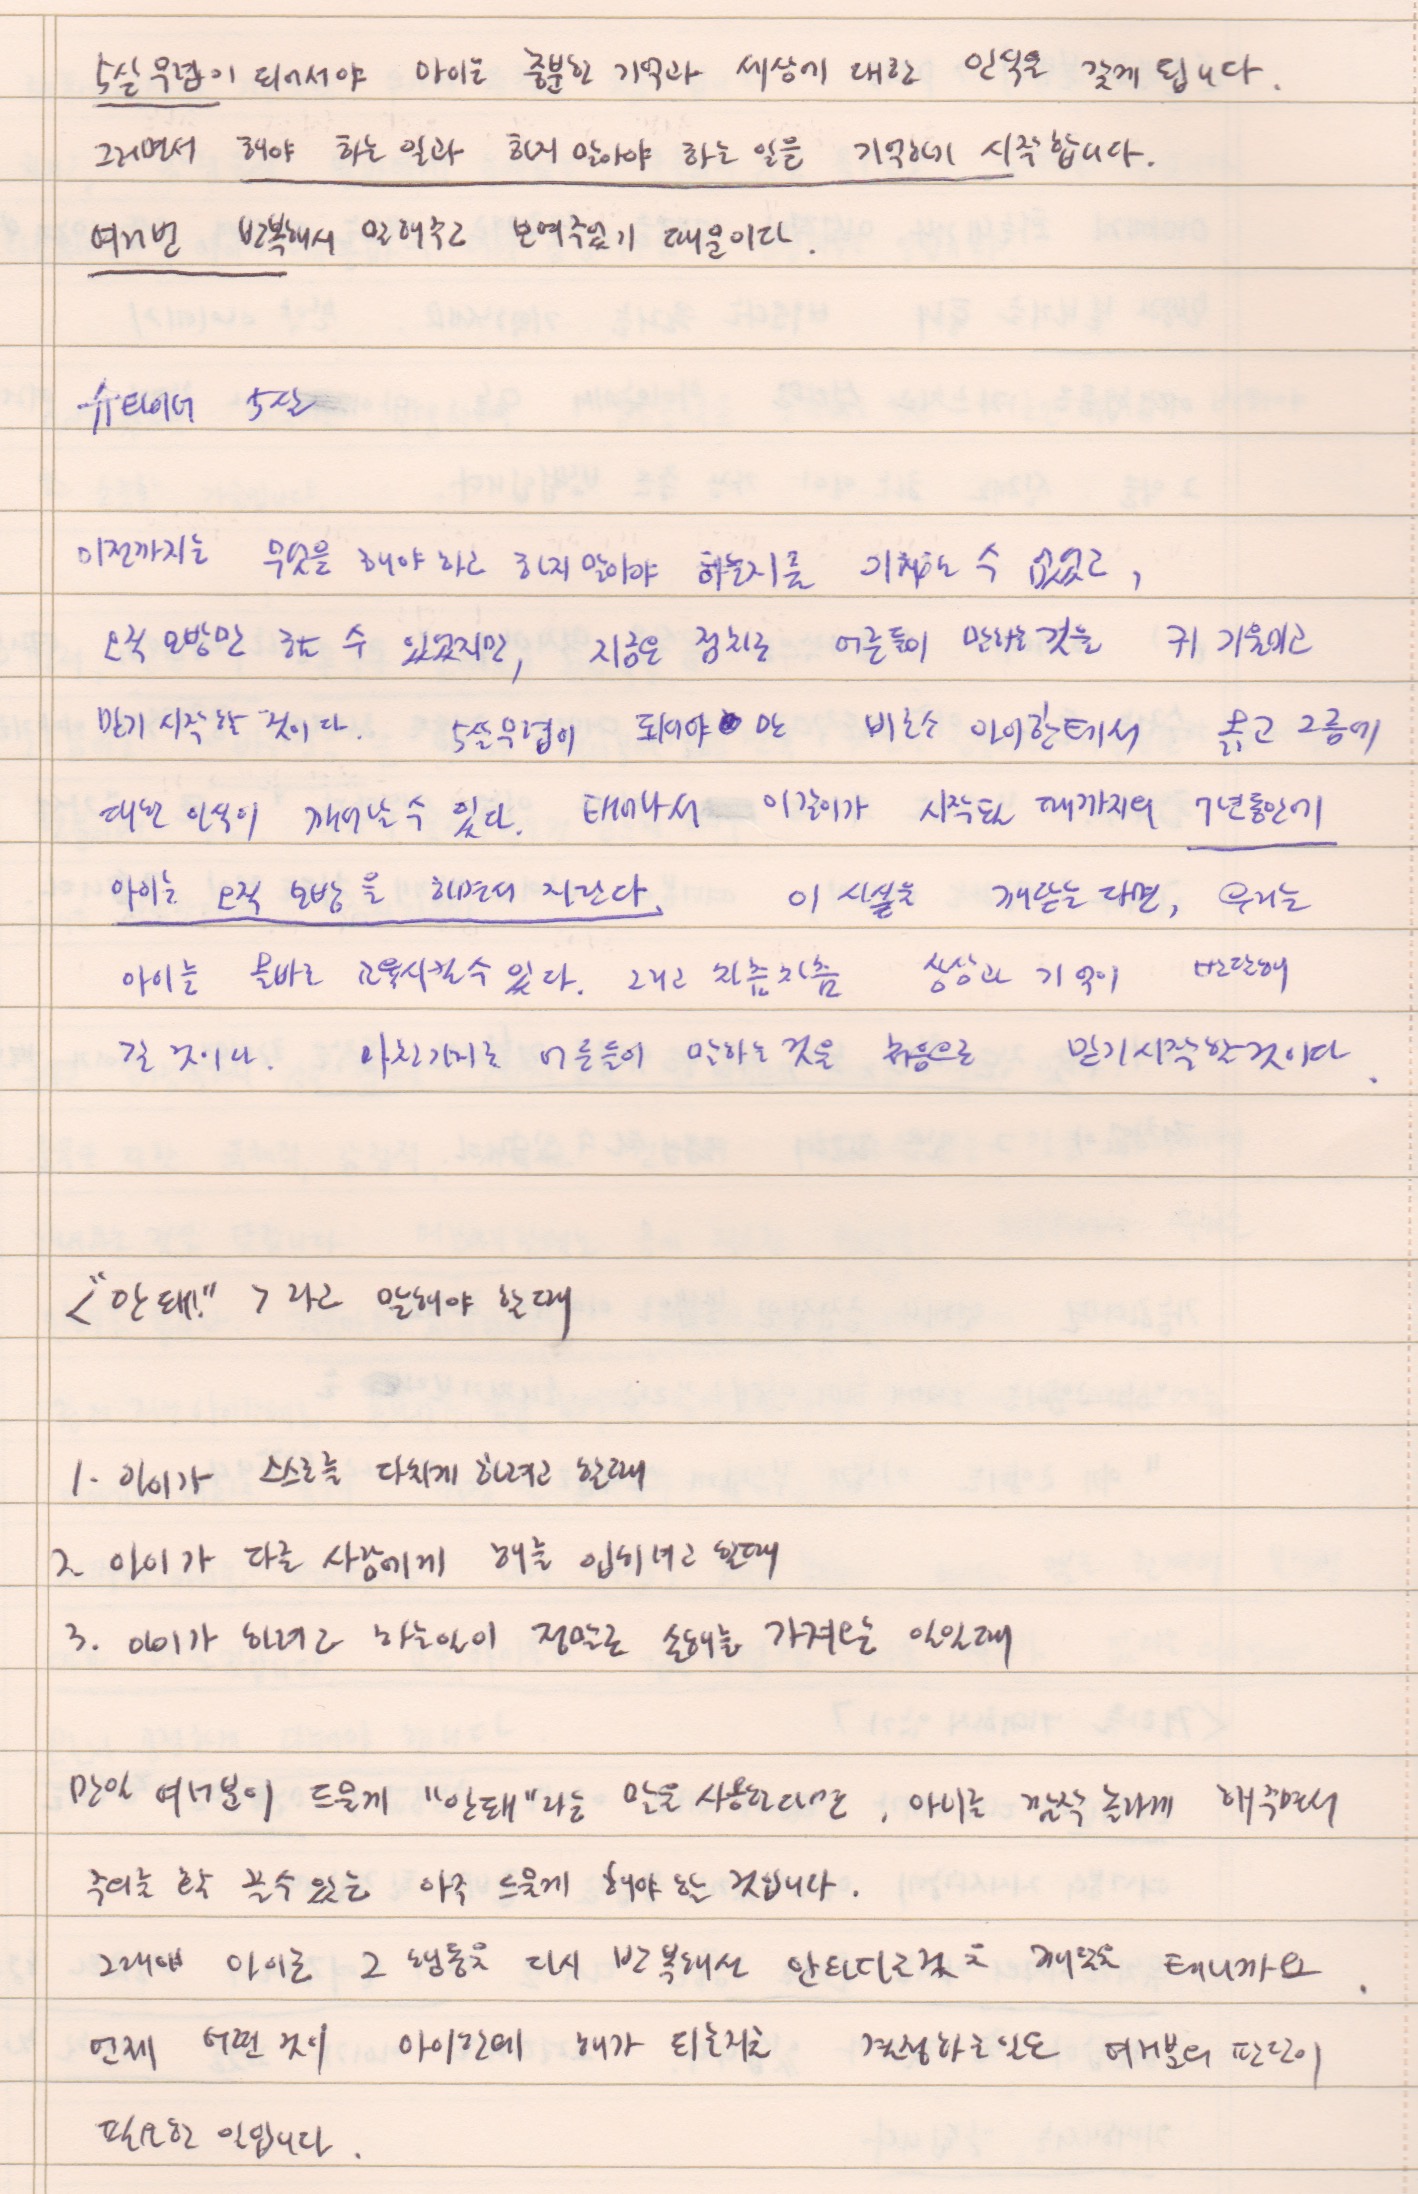 5살무렵이 되어서야 아이는 충분한 기억과 세상에 대한 인식을 갖게 됩니다.
그러면서 해야 하는 일과 하지 말아야 하는 일을 기억하기 시작합니다.
여러번 반복해서 말해주고 보여주었기 때문이다.
슈타이너 5살
이전까지는 무엇을 해야하고 하지 말아야 하는지를 기억할 수 없었고,
오직 모방만 할 수 있었지만, 지금은 점차로 어른들이 말하는 것을 귀 기울이고
믿기 시작할 것이다. 5살무렵이 되어야 만 비로소 아이한테서 옳고 그름에
대한 인식이 깨어날 수 있다. 태어나서 이갈이가 시작될 때까지의 7년동안에
아이는 오직 모방을 하면서 자란다. 이 사실을 깨닫는다면, 우리는
아이를 올바로 교육시킬수 있다. 그리고 차츰차츰 상상과 기억이 발달해
갈 것이다. 마찬가지로 어른들이 말하는 것을 처음으로 믿기 시작할 것이다.
<"안돼!" > 라고 말해야 할때
1. 아이가 스스로를 다치게 하려고 할때
2. 아이가 다른 사람에게 해를 입히려고 할때
3. 아이가 하려고 하는일이 정말로 손해를 가져오는 일일때
만일 여러분이 드물게 "안돼"라는 말을 사용한다면, 아이를 깜짝 놀라게 해주면서
주의를 확 끌수 있는 아주 드물게 해야 할 것입니다.
그래야 아이는 그 행동을 다시 반복해선 안된다는것을 깨달을 테니까요.
언제 어떤 것이 아이한테 해가 되는지를 결정하는일은 여러분의 판단이
필요한 일입니다.